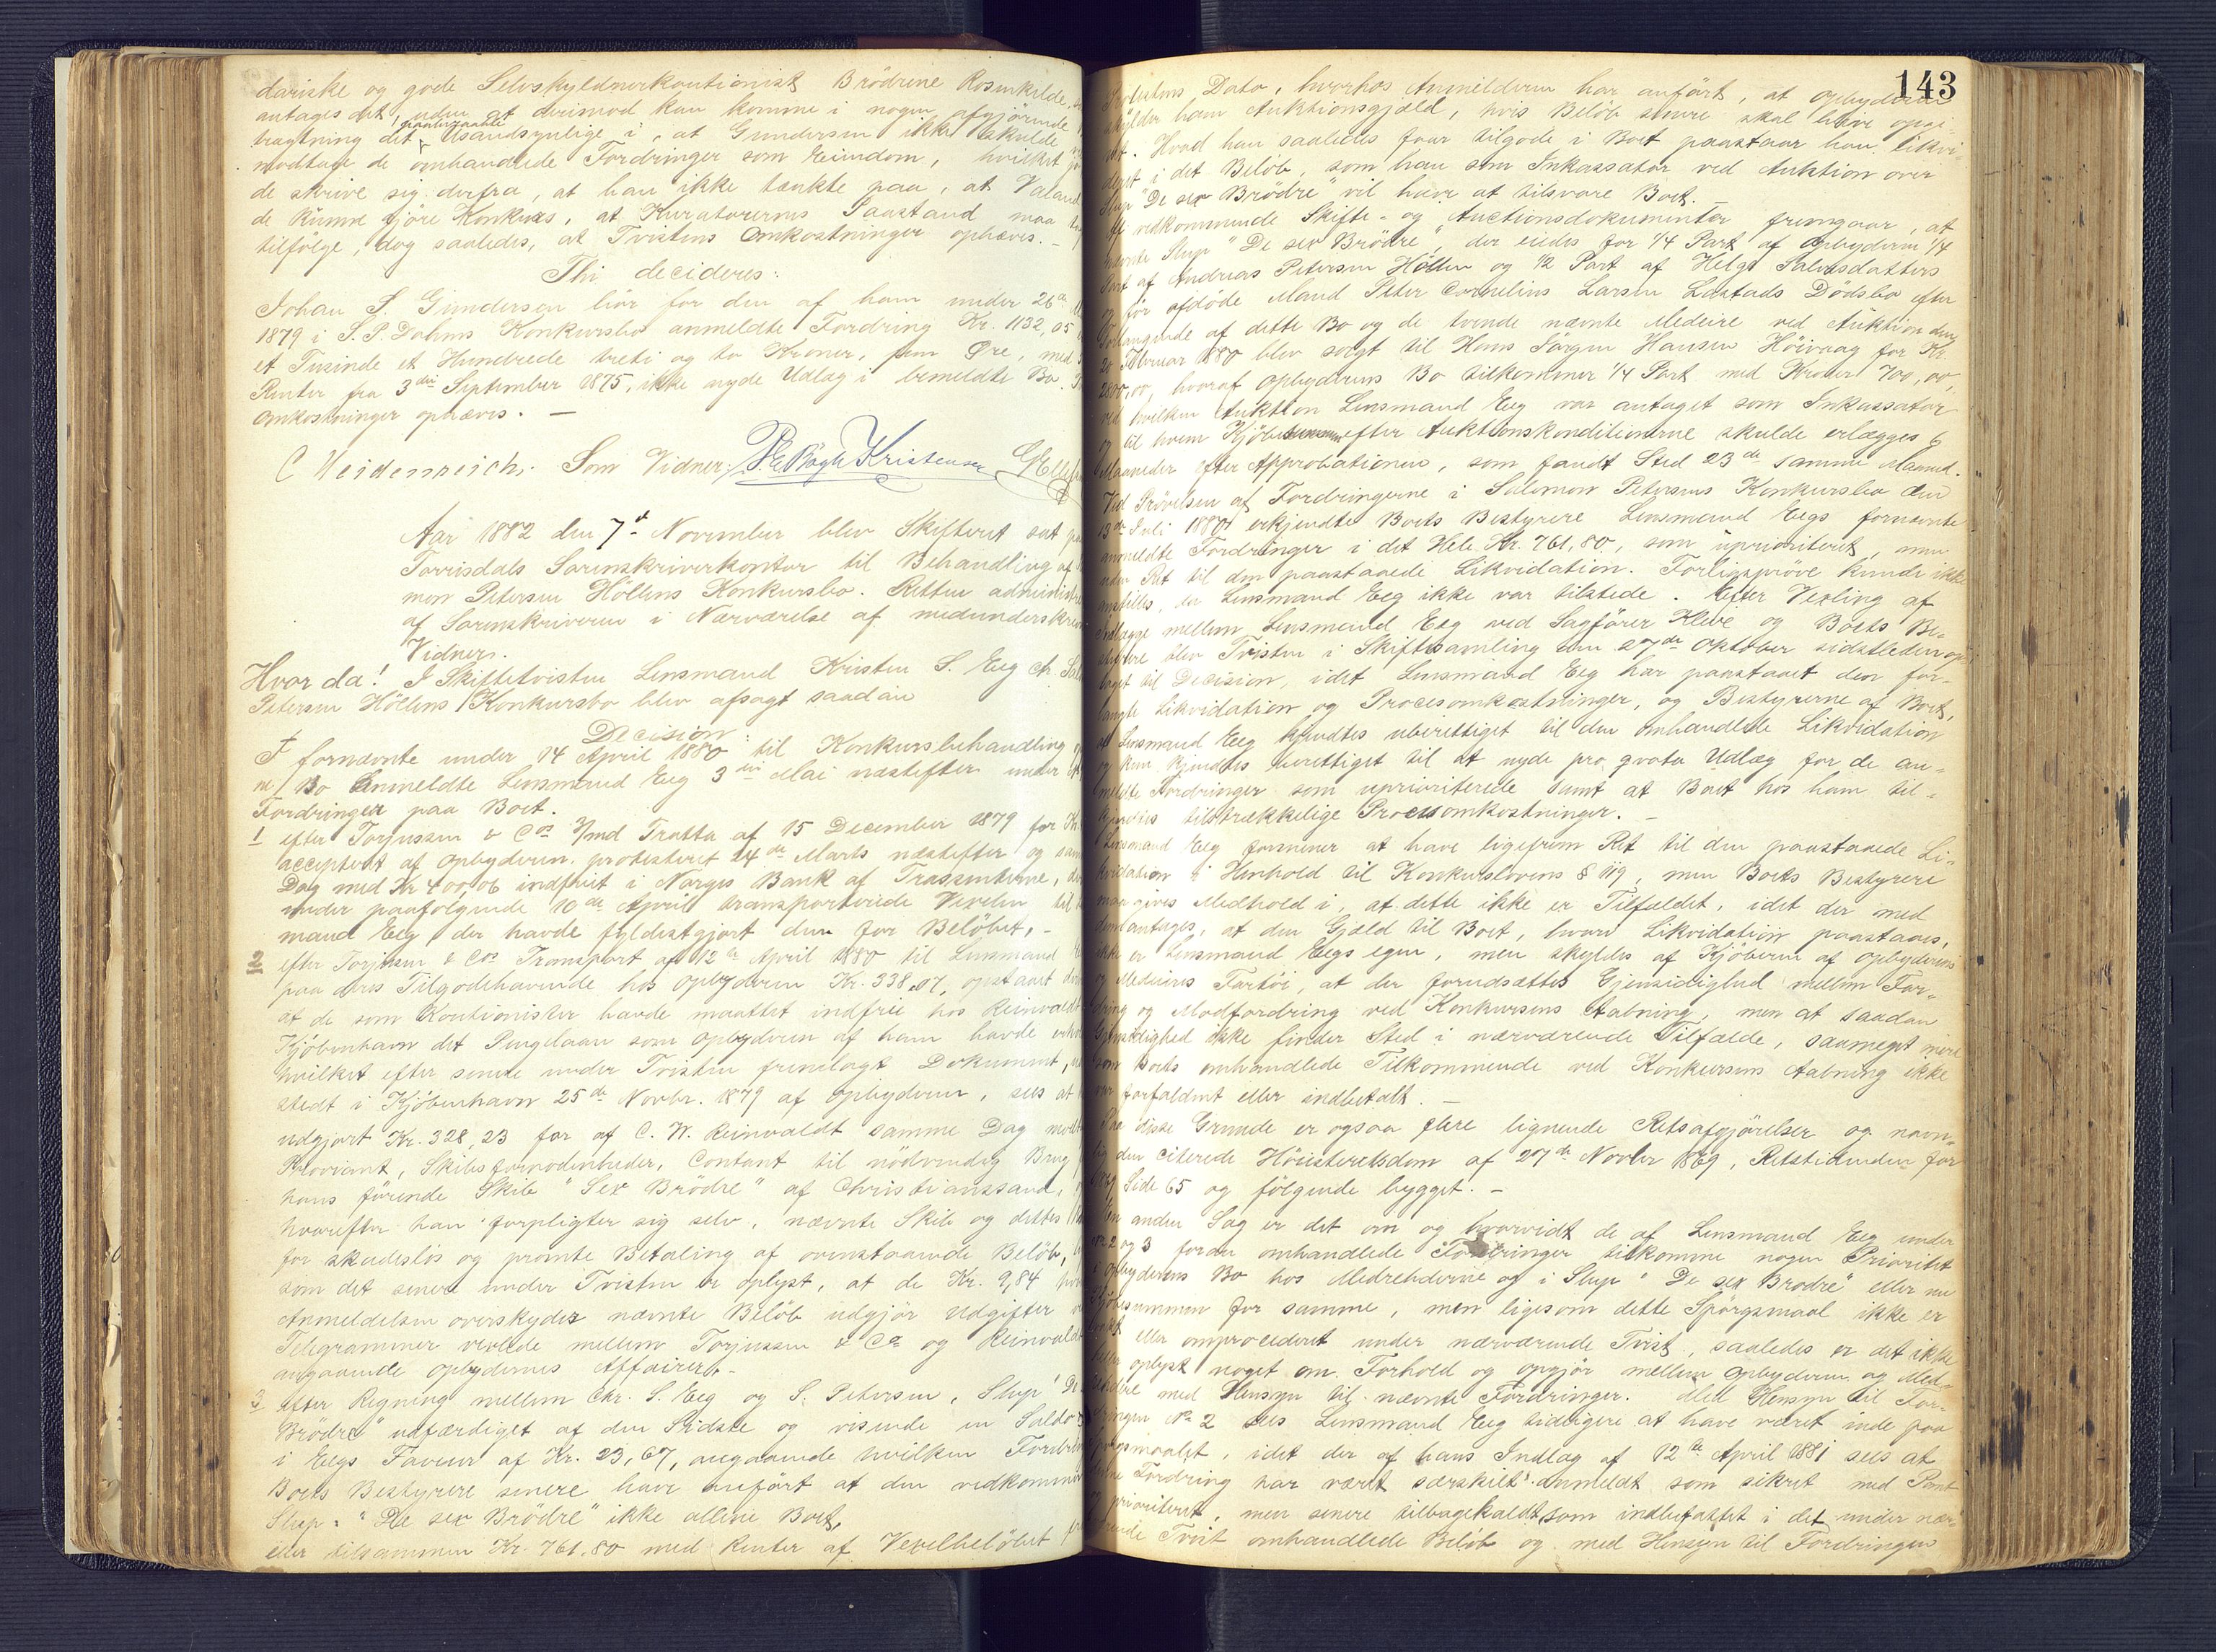 dariske og gode Selvskyldnerkautionist Brödrene Rosenkilde,
antages det, uden at derimod kan komme i nogen afgjörende
tragtning det paaberaabte Usandsynlige i, at Gundersen ikke skulde
modtage de omhandlede Fordringer som Eiendom, hvilket
de skrive sig derfra, at han ikke tænkte paa, at Valand
de kunne gjöre Konkurs, at Kuratorernes Paastand maa
tilfölge, dog saaledes, at Tvistens Omkostninger ophæves. –
Thi decideres:
Johan S. Gundersen bör for den af ham under 26de
1879 i S. P. Dahms Konkursbo anmeldte Fordring Kr. 1132,05
et Tusinde et Hundrede treti og to Kroner, fem Øre, med
Renter fra 3die September 1875, ikke nyde Udlæg i bemeldte Bo.
Omkostninger ophæves. –
C Heidenreich. Som Vidner: P. E. Bögh Kristensen
Aar 1882 den 7de November blev Skifteret sat
Torrisdals Sorenskriverkontor til Behandling af
mon Petersen Höllens Konkursbo. Retten administre
af Sorenskriveren i Nærværelse af medunderskrev
Vidner.
Hvor da! I Skiftetvisten Lensmand Kristen S. Eeg ctr. Sal
Petersen Höllens Konkursbo blev afsagt saadan
Decision:
I fornævnte under 14 April 1880 til Konkursbehandling
ne Bo anmeldte Lensmand Eeg 3die Mai næstefter under
Fordringer paa Boet.
1 efter Torjussen & Co's 3/md Tratta af 15 December 1879 for Kr.
accepteret af Opbyderen, protesteret 24de Marts næstefter og sam
Dag med Kr 400,06 indfriet i Norges Bank af Trassenterne,
under paafölgende 10de April transporterede Vexelen til
mand Eeg, der havde fyldestgjort dem for Belöbet, –
2 efter Torjussen & Co's Transport af 12te April 1880 til Lensmand
paa deres Tilgodehavende hos Opbyderen Kr. 338,07, opstaaet
at de som Kautionister havde maattet indfrie hos Reinvaldt
Kjöbenhavn det Pengelaan som Opbyderen af ham havde
hvilket efter senere under Tvisten fremlagt Dokument,
stedt i Kjöbenhavn 25de Novbr. 1879 af Opbyderen, sees at
udgjort Kr. 328,23 for af C. W. Reinvaldt samme Dag
Proviant, Skibsfornödenheder, Contant til nödvendig Brug
hans förende Skib "Sex Brödre" af Christianssand,
hvorefter han forpligter sig selv, nævnte Skib og dettes
for skadeslös og prompte Betaling af ovenstaaende Belöb,
som det senere under Tvisten er oplyst, at de Kr. 9,84
Anmeldelsen overskyder nævnte Belöb udgjör Udgifter
Telegrammer vexlede mellem Torjussen & Co og Reinvaldt
angaaende Opbyderens Affairer. –
3 efter Regning mellem Chr. S. Eeg og S. Petersen, Slup "De
Brödre" udfærdiget af den Sidste og visende en Saldo
i Eegs Faveur af Kr. 23,67, angaaende hvilken Fordring
Boets Bestyrere senere have anfört at den vedkommer
Slup: "De sex Brödre" ikke allene Boet,
eller tilsammen Kr. 761.80 med Renter af Vexelbelöbet
143
Protestens Dato, hvorhos Anmelderen har anfört, at Opbyderen
skylder ham Auktionsgjæld, hvis Belöb senere skal blive opgi-
vet. Hvad han saaledes faar tilgode i Boet paastaar han likvi-
deret i det Belöb, som han som Inkassator ved Auktion over
Slup "De sex Brödre" vil have at tilsvare Boet. –
Af vedkommende Skifte- og Auctionsdokumenter fremgaar, at
nævnte Slup "De sex Brödre", der eiedes for 1/4 Part af Opbyderen 1/4
Part af Andreas Petersen Höllen og 1/2 Part af Helge Salvesdatters
og för afdöde Mand Peter Cornelius Larsen Lastads Dödsbo efter
Forlangende af dette Bo og de tvende nævnte Medeire ved Auktion den
20 Februar 1880 blev solgt til Hans Jörgen Hansen Höivaag for Kr.
2800,00, hvoraf Opbyderens Bo tilkommer 1/4 Part med Kroner 700,00,
ved hvilken Auktion Lensmand Eeg var antaget som Inkassator
og til hvem Kjöbesummen efter Auktionskonditionerne skulde erlægges 6
Maaneder efter Approbationen, som fandt Sted 23de samme Maaned.
Ved Prövelsen af Fordringerne i Salomon Petersens Konkursbo den
13de Juli 1880 erkjendte Boets Bestyrere Lensmand Eegs fornævnte
anmeldte Fordringer i det Hele Kr. 761,80, som uprioriteret, men
uden Ret til den paastaaede Likvidation. Forligspröve kunde ikke
anstilles, da Lensmand Eeg ikke var tilstede. Efter Vexling af
Indlægge mellem Lensmand Eeg ved Sagförer Kleve og Boets Be-
styrere blev Tvisten i Skiftesamling den 27de Oktober sidstleden op-
taget til Decision, idet Lensmand Eeg har paastaaet den for-
langte Likvidation og Procesomkostninger, og Bestyrerne af Boet,
at Lensmand Eeg kjendtes uberettiget til den omhandlede Likvidation
og kun kjendes berettiget til at nyde pro qvota Udlæg for de an-
meldte Fordringer som uprioriterede samt at Boet hos ham til-
kjendes tilstrækkelige Procesomkostninger. –
Lensmand Eeg formener at have ligefrem Ret til den paastaaede Li-
kvidation i Henhold til Konkurslovens § 119, men Boets Bestyrere
maa gives Medhold i, at dette ikke er Tilfældet, idet der med
dem antages, at den Gjæld til Boet, hvori Likvidation paastaaes,
ikke er Lensmand Eegs egen, men skyldes af Kjöberen af Opbyderens
og Medeires Fartöi, at der forudsættes Gjensidighed mellem For-
dring og Modfordring ved Konkursens Aabning, men at saadan
Gjensidighed ikke finder Sted i nærværende Tilfælde, saameget mere
som Boets omhandlede Tilkommende ved Konkursens Aabning ikke
var forfaldent eller indbetalt. –
Paa disse Grunde er ogsaa flere lignende Retsafgjörelser og navn-
lig den citerede Höiesteretsdom af 27de Novbr 1869, Retstidenden for
Side 65 og fölgende bygget. –
En anden Sag er det om og hvorvidt de af Lensmand Eeg under
No 2 og 3 foran omhandlede Fordringer tilkomme nogen Prioritet
i Opbyderens Bo hos Medrehderne og i Slup "De sex Brödre" eller nu
Kjöbesummen for samme, men ligesom dette Spörgsmaal ikke er
eller omprocederet under nærværende Tvist, saaledes er det ikke
heller oplyst noget om Forhold og Opgjör mellem Opbyderen og Med-
rehdere med Hensyn til nævnte Fordringer. Med Hensyn til For-
dringen No 2 sees Lensmand Eeg tidligere at have været inde paa
Spörgsmaalet, idet der af hans Indlæg af 12te April 1881 sees at
denne Fordring har været særskilt anmeldt som sikret med Pant
og prioriteret, men senere tilbagekaldt som indbefattet i det under nær-
værende Tvist omhandlede Belöb og med Hensyn til Fordringen